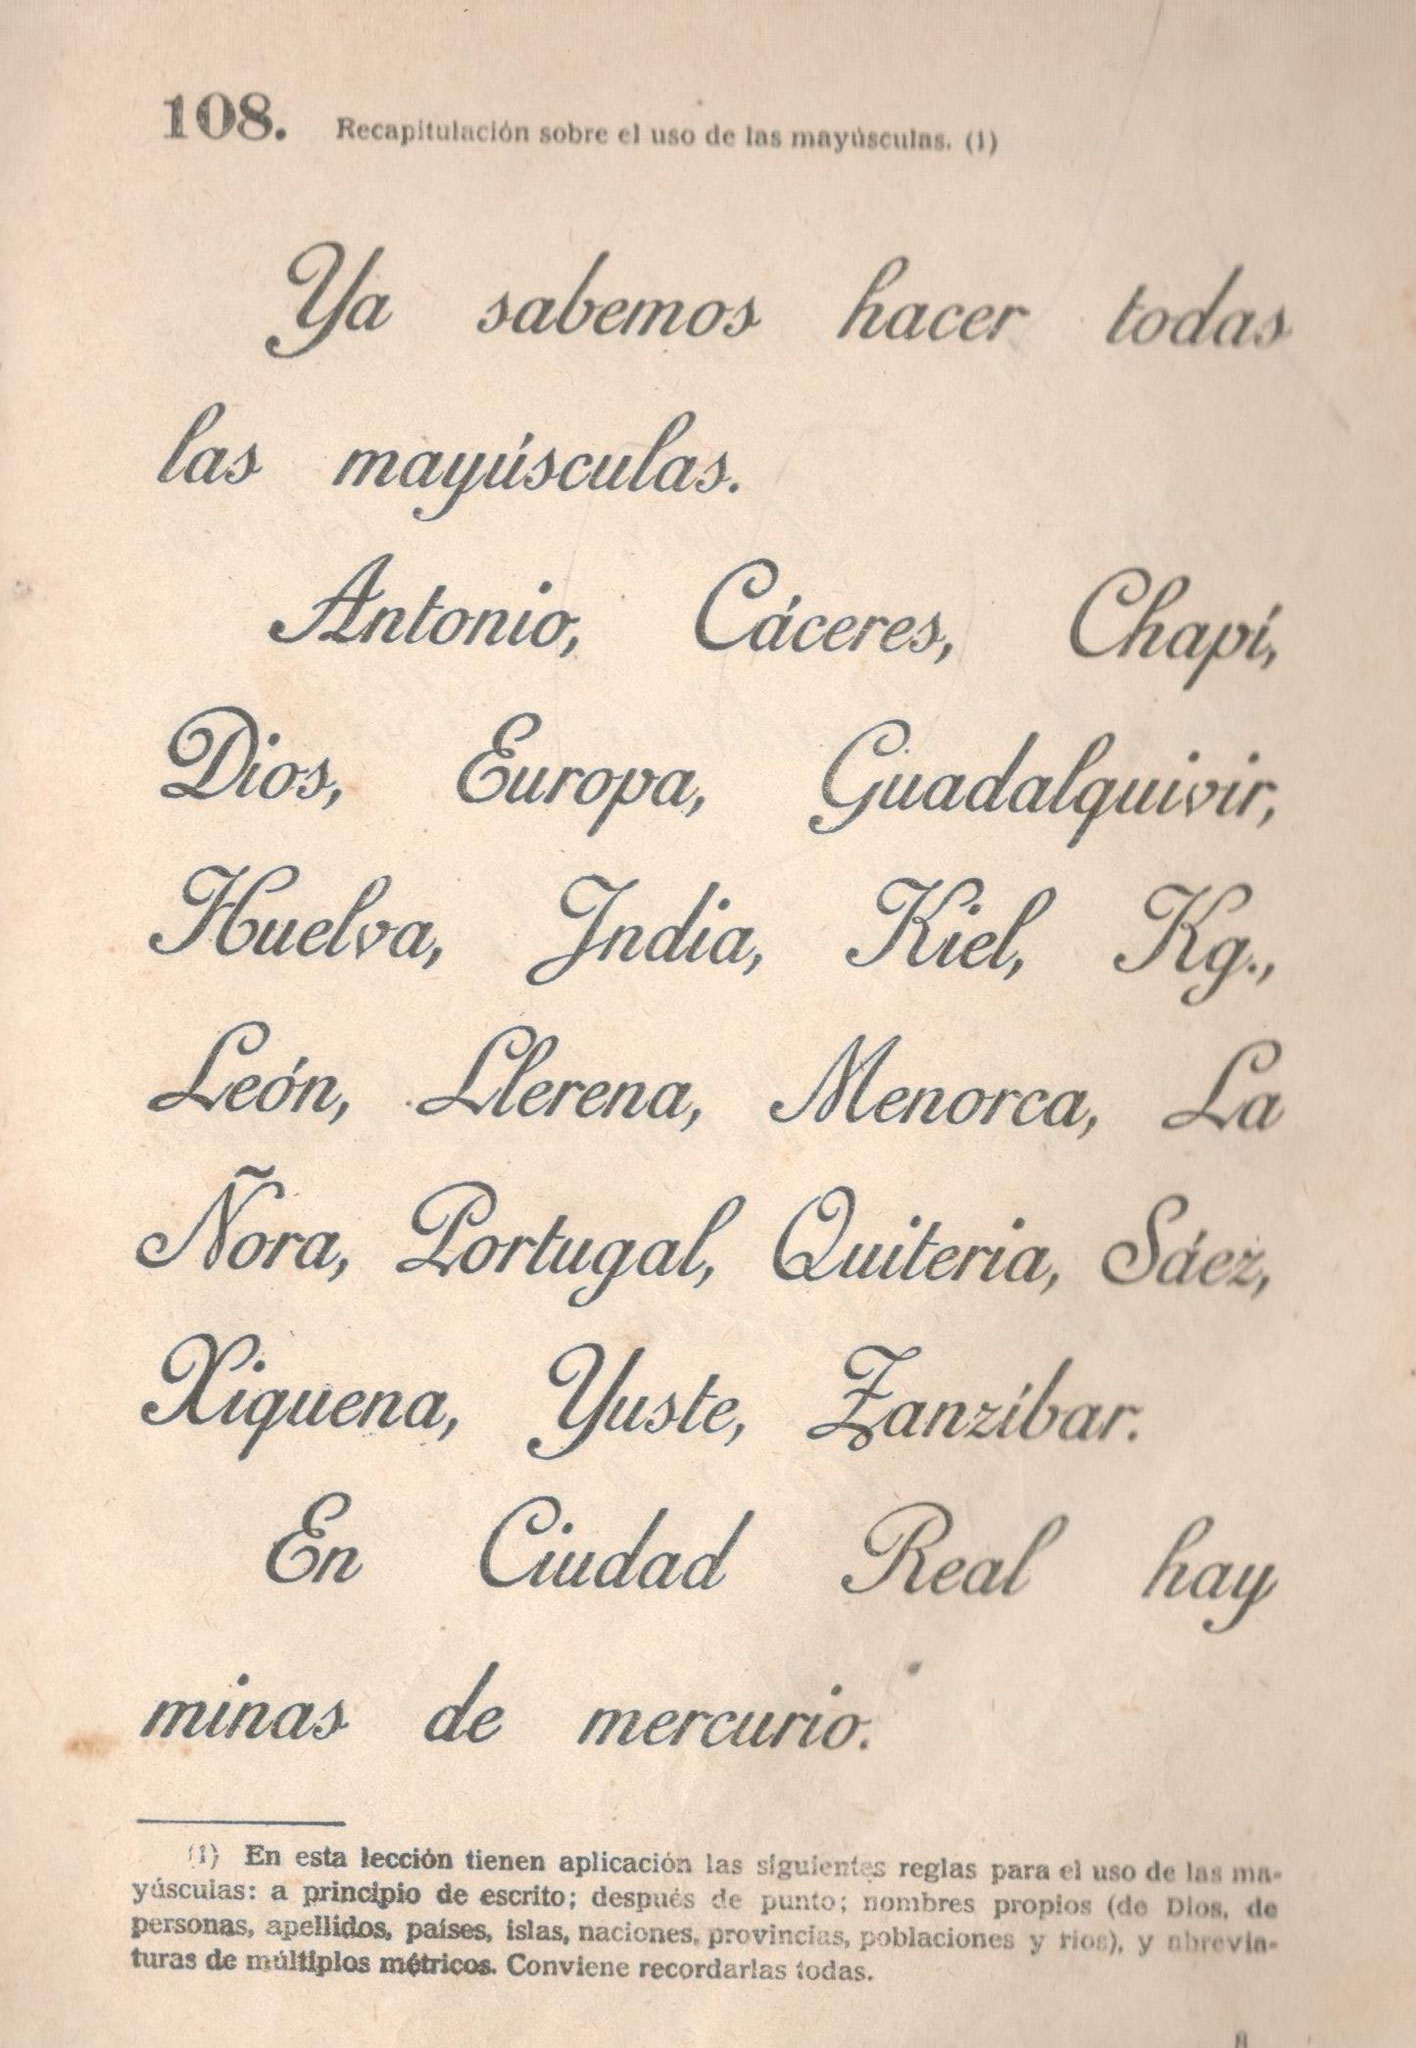 108. Recapitulación sobre el uso de las mayúsculas. (1)
Ya sabemos hacer todas
las mayúsculas.
Antonio, Cáceres, Chapí,
Dios, Europa, Guadalquivir,
Huelva, India, Kiel, Kg.,
León, Llerena, Menorca, La
Ñora, Portugal, Quiteria, Sáez,
Xiquena, Yuste, Zanzíbar.
En Ciudad Real hay
minas de mercurio.
(1) En esta lección tienen aplicación las siguientes reglas para el uso de las ma-
yúsculas: a principio de escrito; después de punto; nombres propios (de Dios, de
personas, apellidos, países, islas, naciones, provincias, poblaciones y rios), y abrevia-
turas de múltiplos métricos. Conviene recordarlas todas.
8